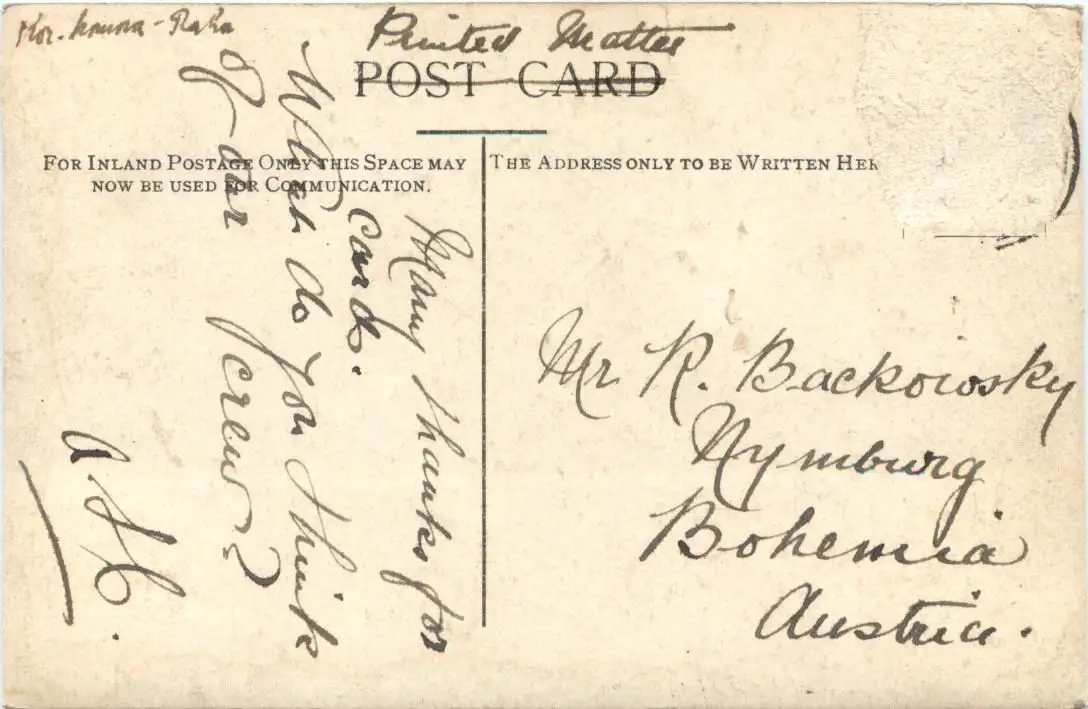 Printed Matter
POST CARD
FOR INLAND POSTAGE ONLY THIS SPACE MAY
NOW BE USED FOR COMMUNICATION.
THE ADDRESS ONLY TO BE WRITTEN HER
Many thanks for
card.
What do you think
of our crew?
Mr R. Backowsky
Nymburg
Bohemia
Austria.